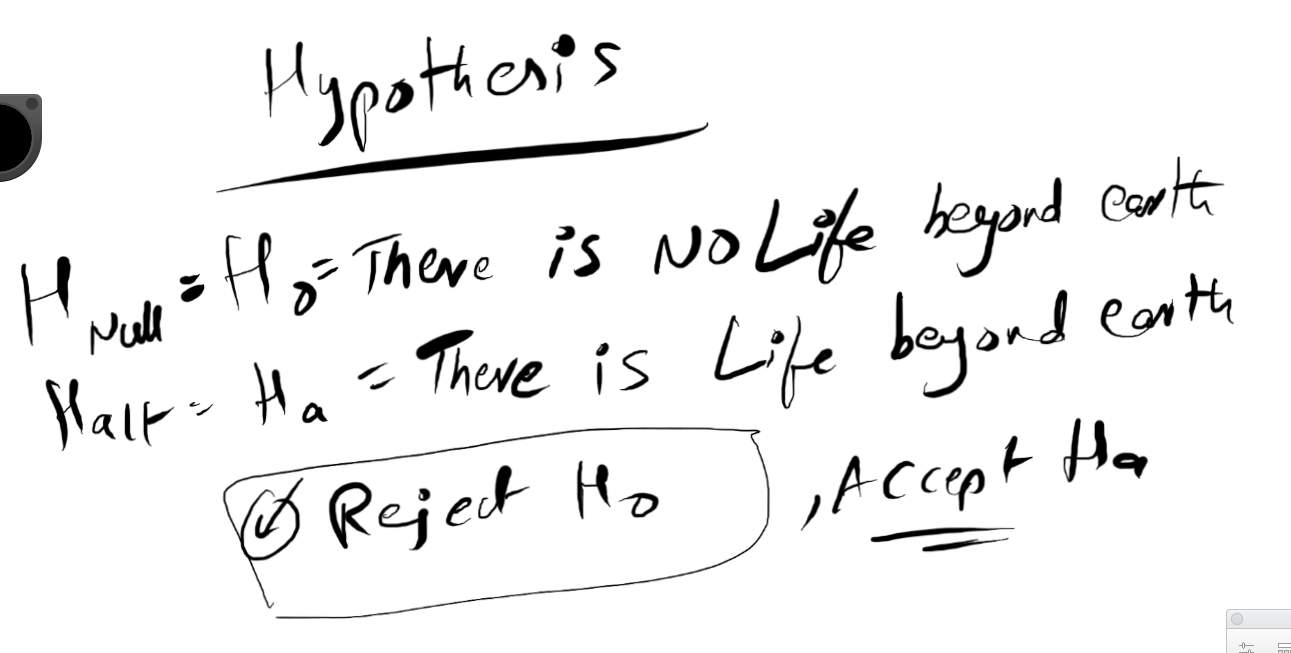 Hypothesis
H Null = H0 = There is NO Life beyond earth
Halt = Ha = There is Life beyond earth
Reject H0, Accept Ha